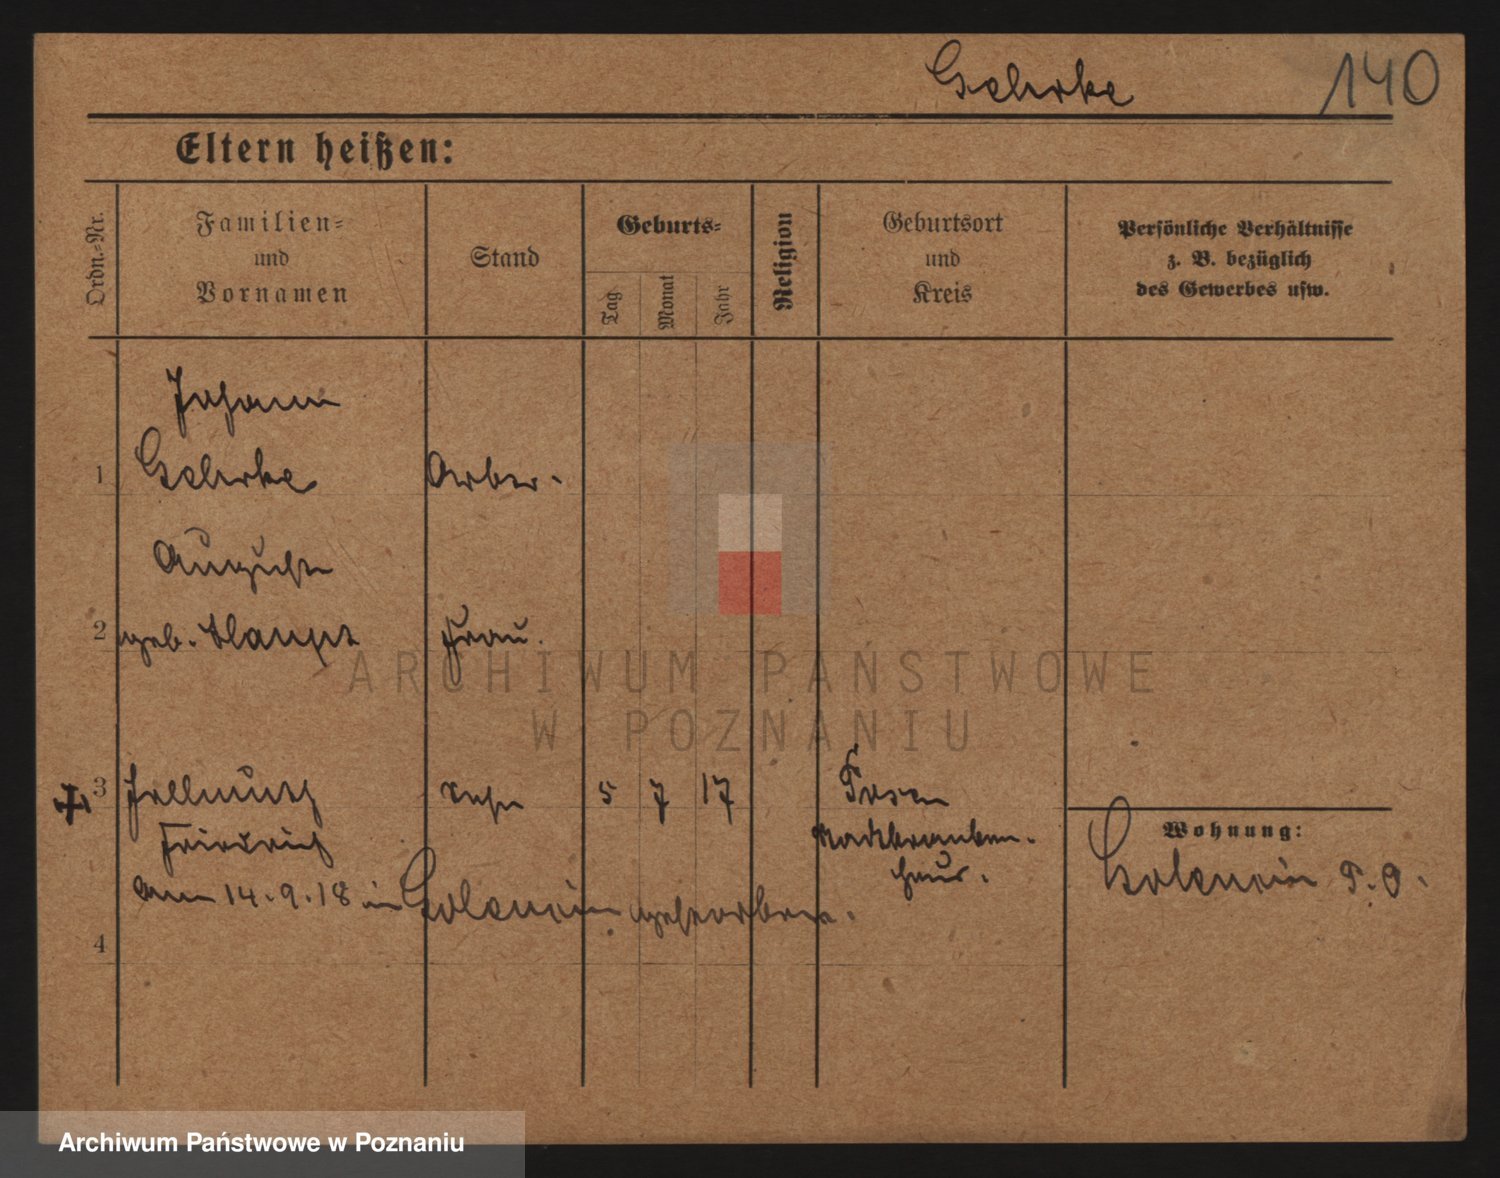 Gehrke 140
Eltern heißen:
Ordn.-Nr.
Familien-
und
Vornamen
Stand
Geburts-
Tag
Monat
Jahr
Religion
Geburtsort
und
Kreis
Persönliche Verhältnisse
z. B. bezüglich
des Gewerbes usw.
Johann
1 Gehrke Arber.
Auguste
2 geb. Frau.
3 Hellmuth Sohn 5 7 17 Posen
Friedrich Stadtkranken-
haus.
Wohnung:
P. O.
am 14.9.18 in gestorben.
4
ARCHIWUM PAŃSTWOWE
W POZNANIU
Archiwum Państwowe w Poznaniu